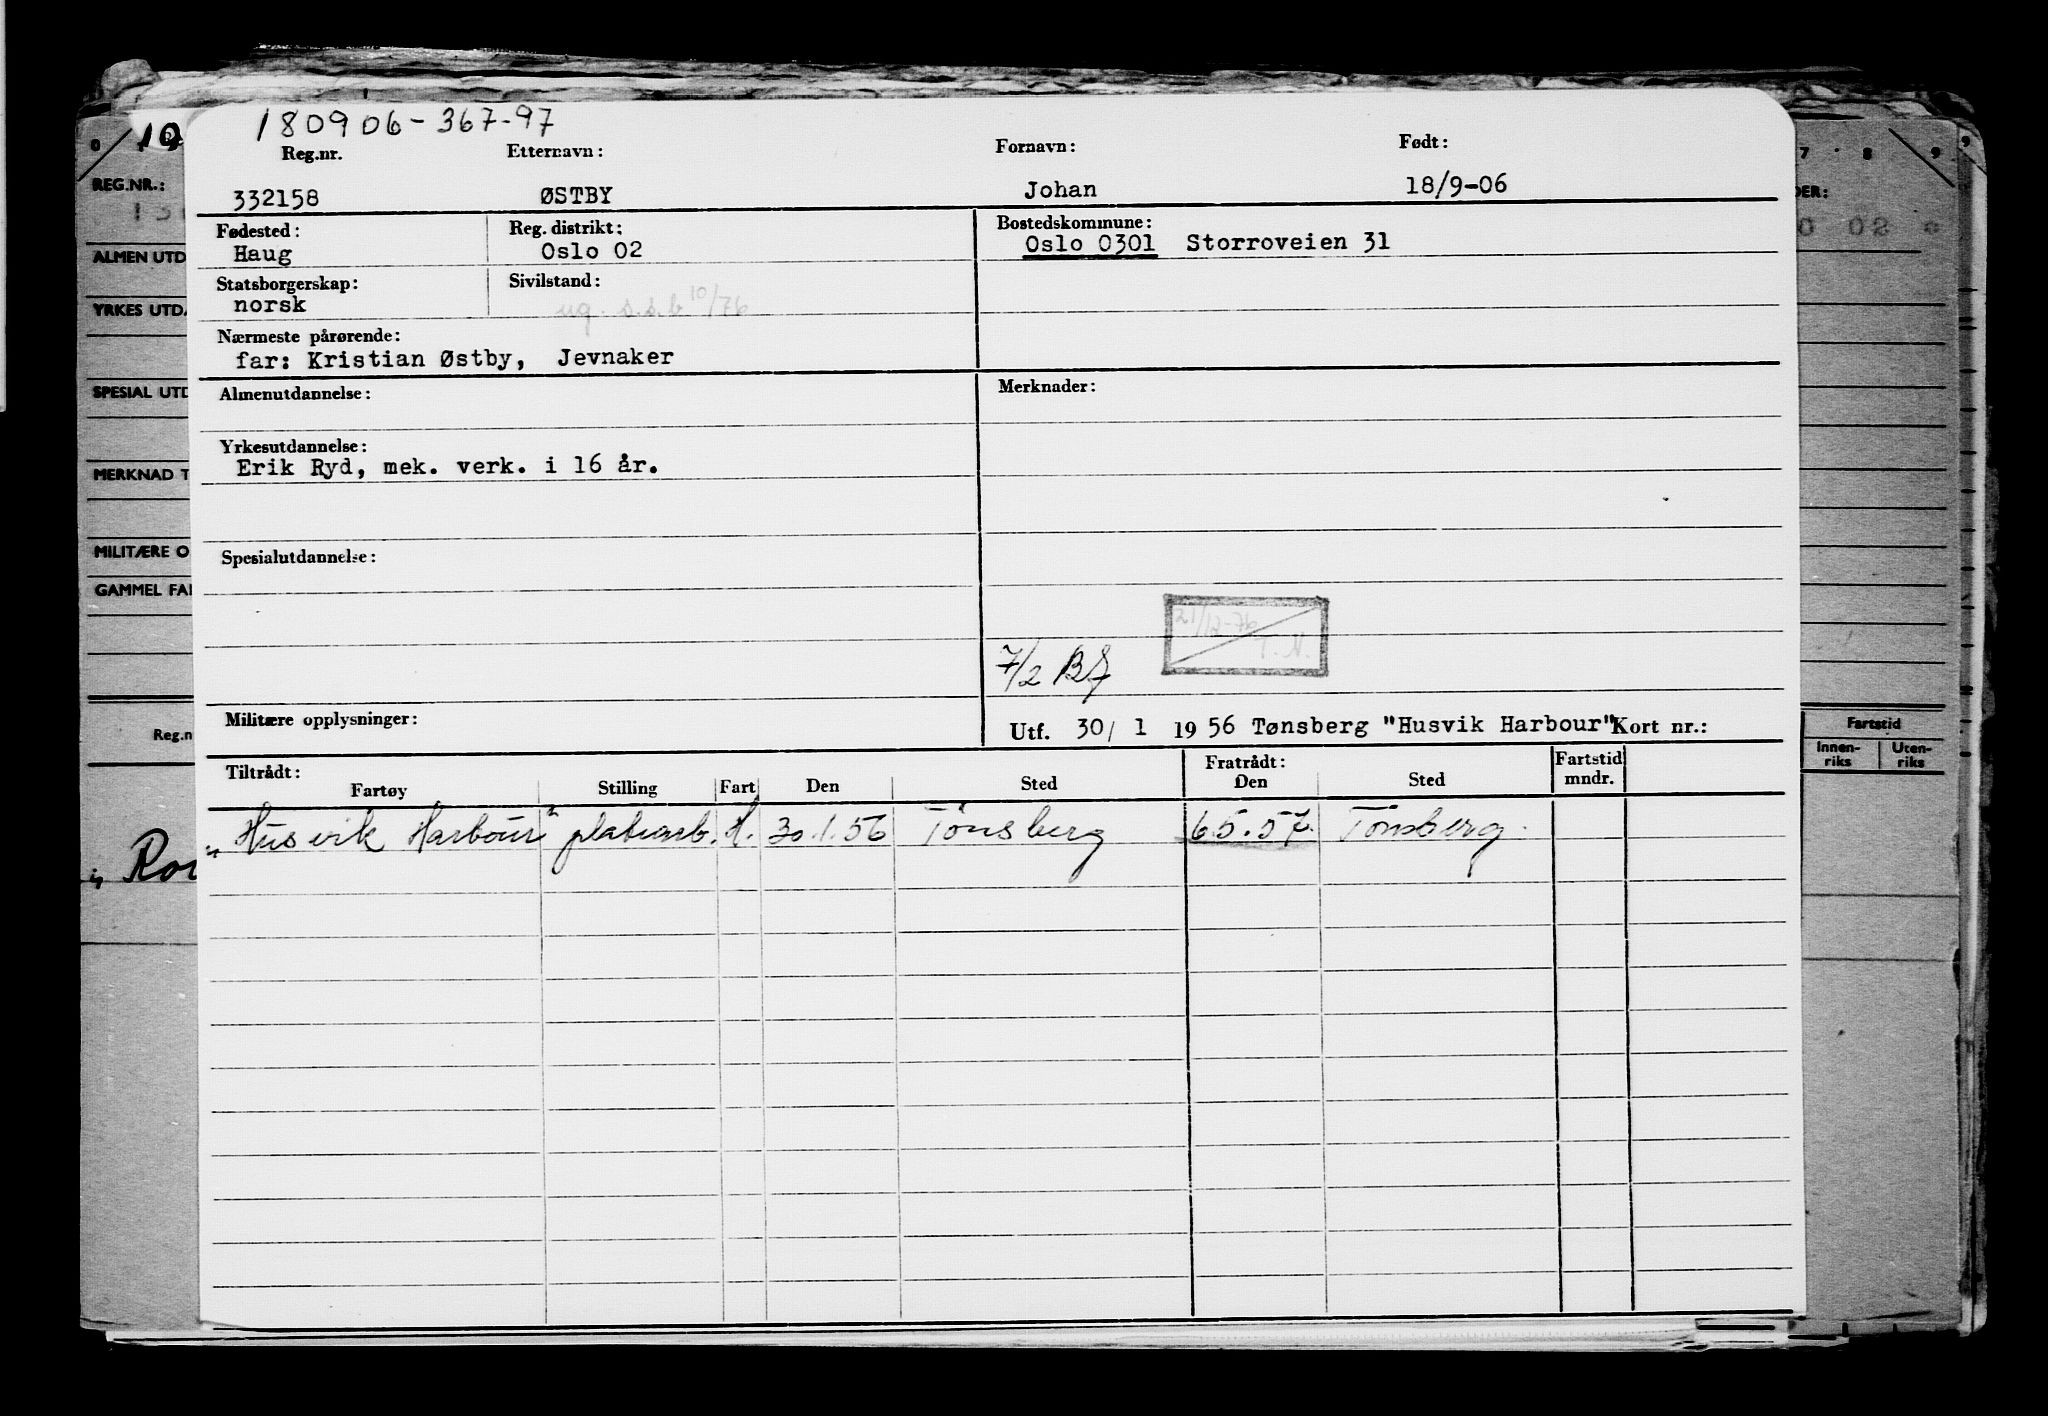 180906-367-97
Reg.nr. Etternavn: Fornavn: Født:
332158 ØSTBY Johan 18/9-06
Fødested: Reg. distrikt: Bostedskommune:
Haug Oslo 02 Oslo 0301 Storroveien 31
Statsborgerskap: Sivilstand:
norsk ug. s.s.b 10/76
Nærmeste pårørende:
far: Kristian Østby, Jevnaker
Almenutdannelse: Merknader:
Yrkesutdannelse:
Erik Ryd, mek. verk. i 16 år.
Spesialutdannelse:
21/12-76 T. N.
7/2
Militære opplysninger: Utf. 30/ 1 1956 Tønsberg "Husvik Harbour" Kort nr.:
Tiltrådt: Fratrådt: Fartstid
Fartøy Stilling Fart Den Sted Den Sted mndr.
"Husvik Harbour" platearb. H. 30.1.56 Tønsberg 6.5.57. Tønsberg.
0 7 8 9 9
REG.NR.: DER:
ALMEN UTD
YRKES UTDA
SPESIAL UTD
MERKNAD T
MILITÆRE O
GAMMEL FAR
Reg.n Fartstid
Innen-riks Uten-riks